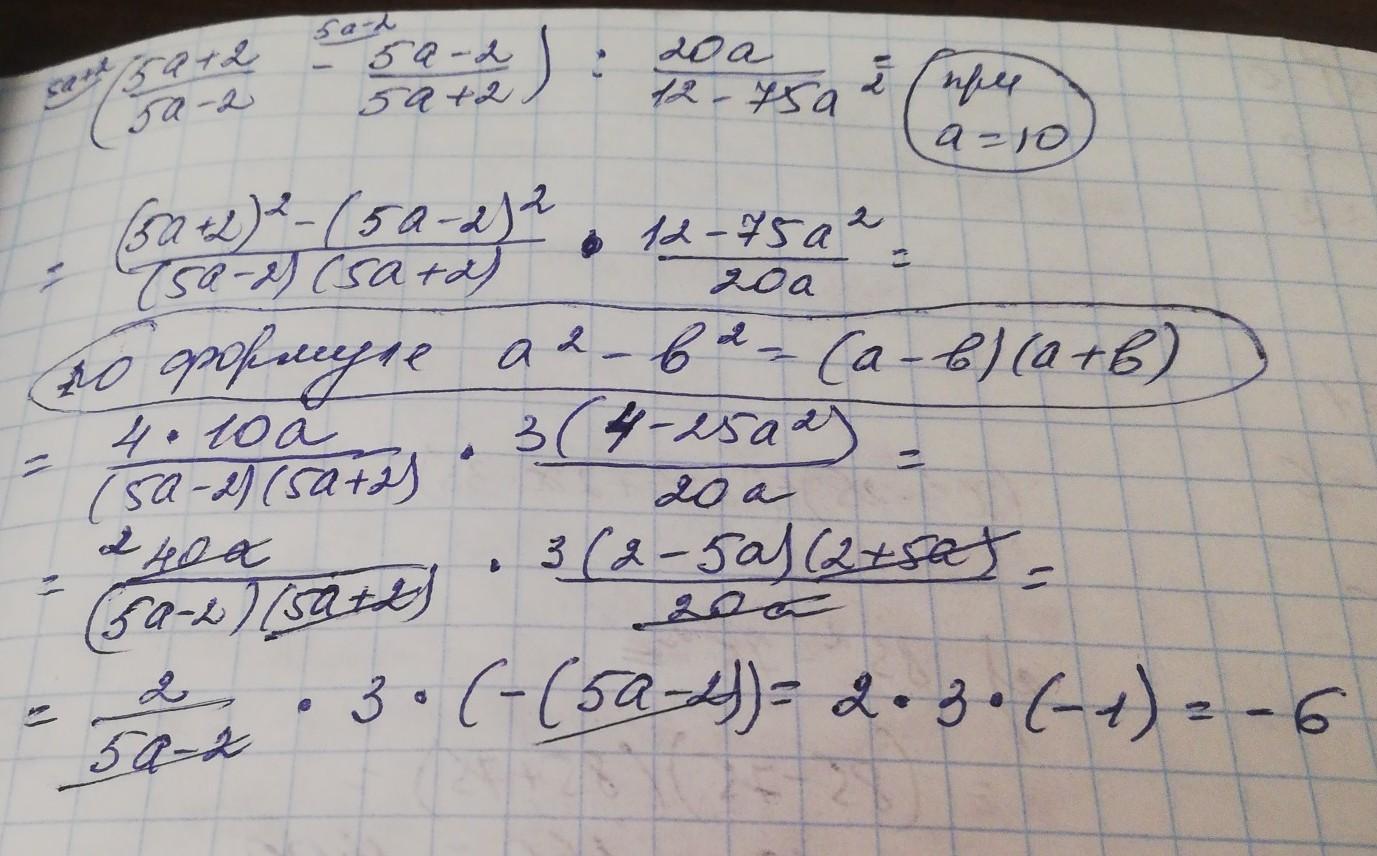 5a+2 ((5a+2)/(5a-2) - 5a-2 (5a-2)/(5a+2)) : 20a/(12-75a²) = при a=10
= ((5a+2)²-(5a-2)²)/((5a-2)(5a+2)) • (12-75a²)/(20a) =
по формуле a²-b²=(a-b)(a+b)
= (4•10a)/((5a-2)(5a+2)) • (3(4-25a²))/(20a) =
= 2 40a/((5a-2)(5a+2)) • (3(2-5a)(2+5a))/(20a) =
= 2/(5a-2) • 3•(-(5a-2))= 2•3•(-1)=-6